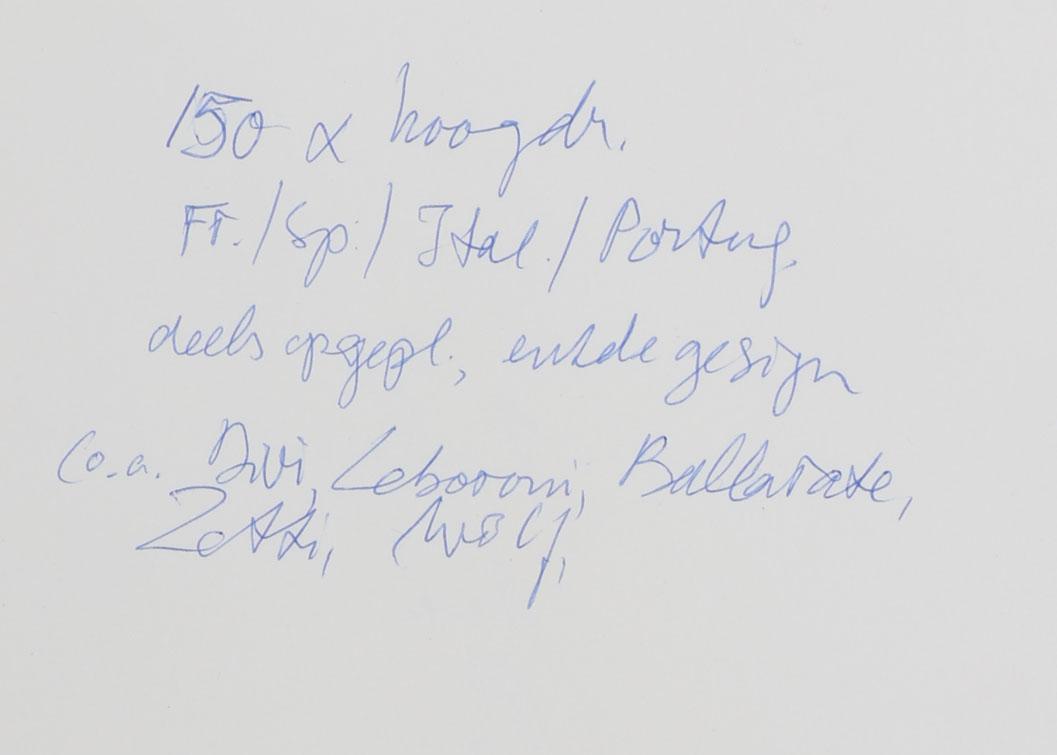 150 x hoogdr.
Fr./Sp./Ital./Portug.
deels opgepl.; enkele gesign
(o.a. Divi, Zeboroni, Ballarate,
Zetti, Wolf,